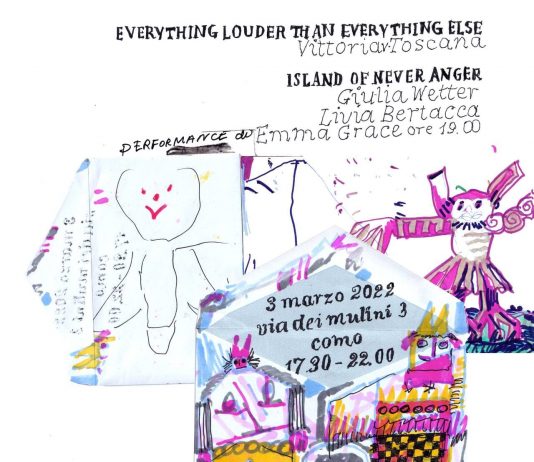 EVERYTHING LOUDER THAN EVERYTHING ELSE
Vittoria Toscana
ISLAND OF NEVER ANGER
Giulia Wetter
Livia Bertacca
PERFORMANCE di Emma Grace ore 19.00
3 marzo 2022
via dei mulini 3
como
17.30 - 22.00